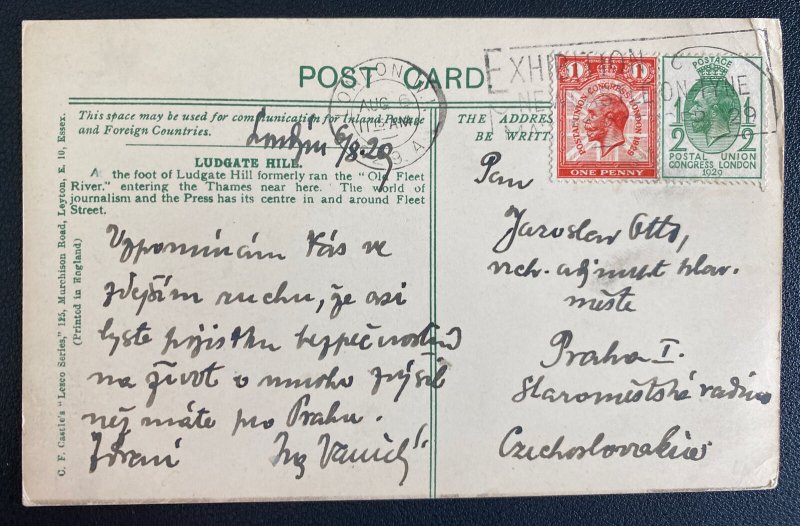 POST CARD
This space may be used for communication for Inland
and Foreign Countries.
THE ADDRE
BE WRITT
London 6/8.29
LUDGATE HILL.
At the foot of Ludgate Hill formerly ran the "Old Fleet
River," entering the Thames near here. The world of
journalism and the Press has its centre in and around Fleet
Street.
Vzpomínám Vás ve
zdejším ruchu, že asi
byste pojistku bezpečnostní
na život o mnoho zvýšil
než máte pro Prahu.
Zdraví Ing
C. F. Castle's "Lesco Series," 125, Murchison Road, Leyton, E. 10, Essex.
(Printed in England)
Pan
Jaroslav Otto,
vrch. adjunkt hlav.
města
Praha I.
Staroměstská radnice
Czechoslovakia
LONDON
AUG 6
11 AM
29
EXHIBITION
NE ON TYNE
MA
1 1
POSTAL UNION CONGRESS LONDON 1929
ONE PENNY
POSTAGE
1 1
2 2
POSTAL UNION
CONGRESS LONDON
1929